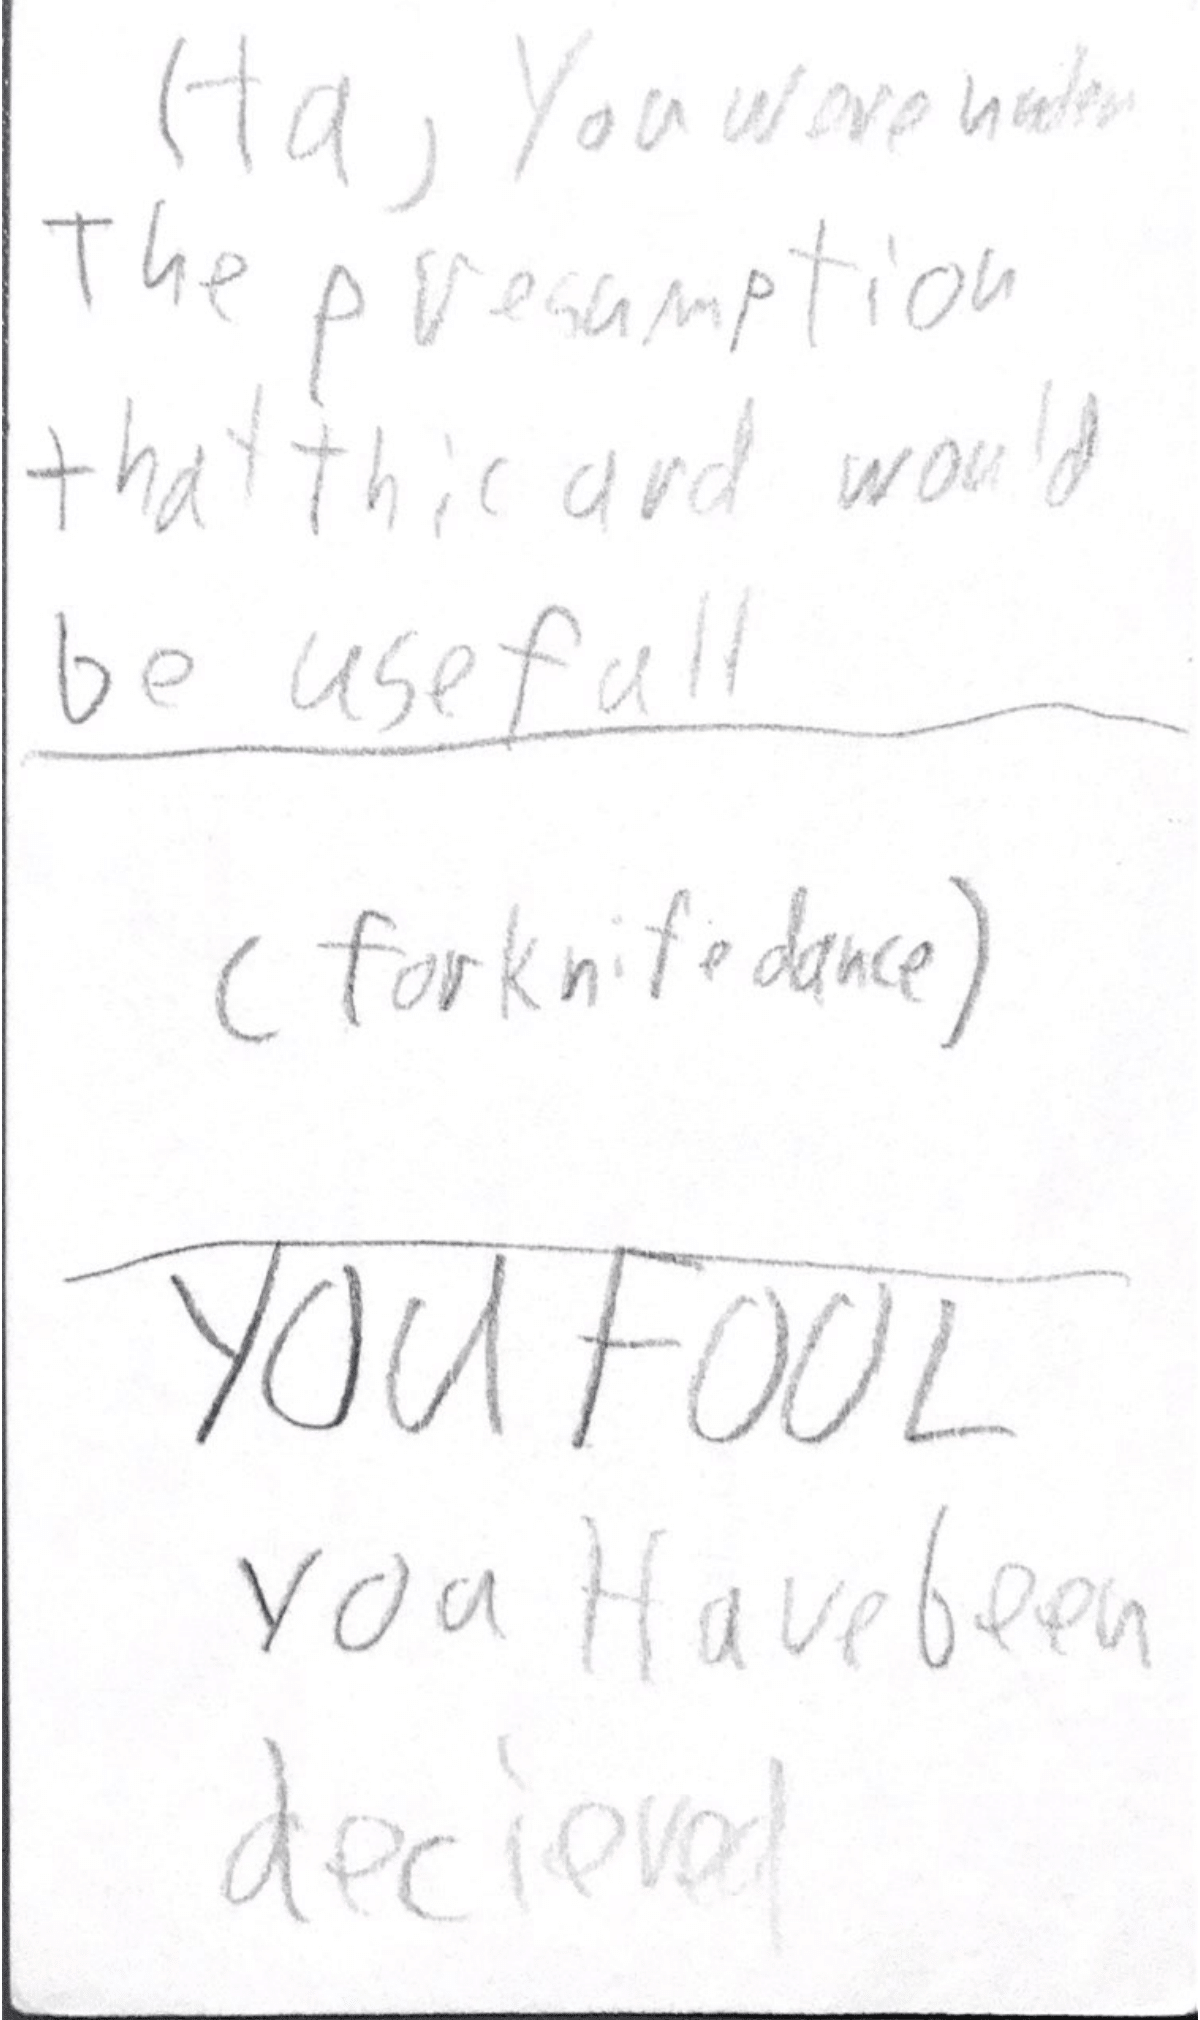 Ha, You were under
the presumption
that this card would
be usefull
(for knife dance)
YOU FOOL
you Have been
decieved